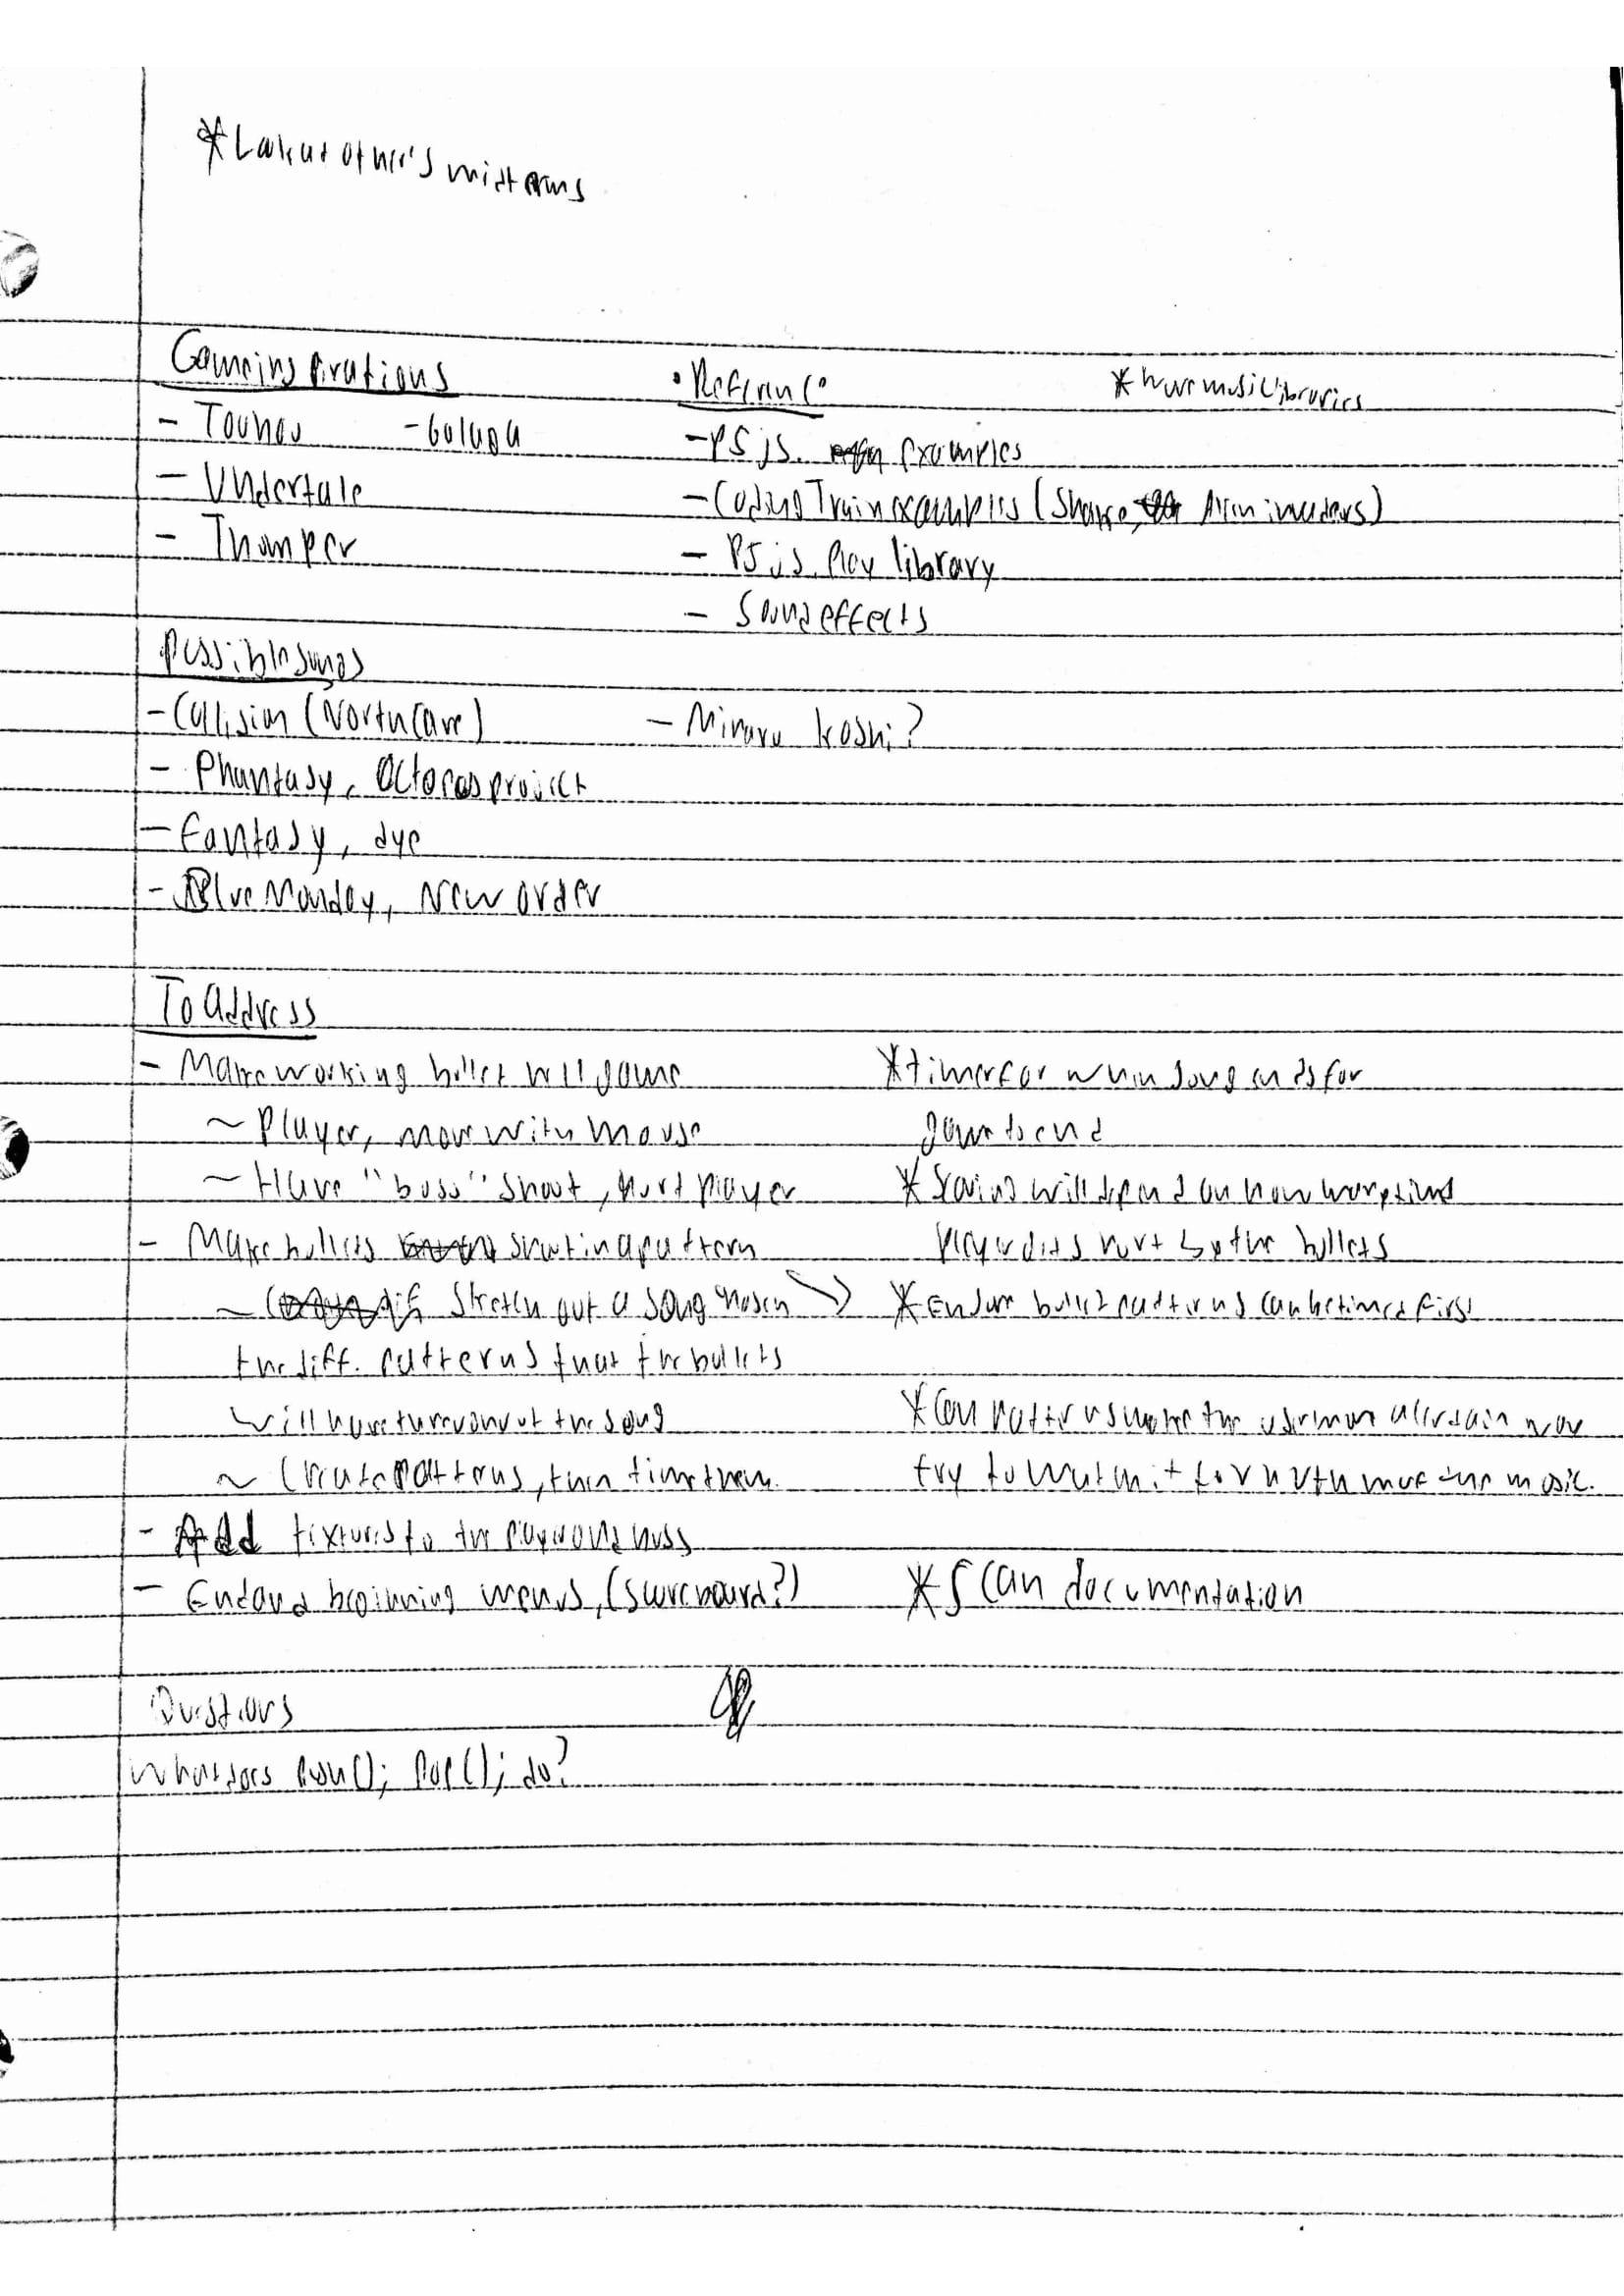 * Look at other's midterms
Game inspirations
- Touhou - Galaga
- Undertale
- Thumper
• Reference
- P5js. examples
- Coding Train examples (Snake, Alien invaders)
- P5js. Play library
- Sound effects
* have music libraries
Possible songs
- Collision (North Cave) - Minaru koshi?
- Phantasy, Octopus project
- Fantasy, dye
- Blue Monday, New Order
To address
- Make working bullet hell game
~ Player, move with mouse
~ Have "boss" shoot, hurt player
- Make bullets shoot in a pattern
~ Sketch out a song chosen
the diff. patterns that the bullets
will have throughout the song
~ Create patterns, then time them.
- Add textures to the player and boss
- End and beginning menus, (scoreboard?)
* timer for when song ends for
game to end
* Scoring will depend on how many times
player gets hurt by the bullets
* Ensure bullet patterns can be timed first
* Can patterns make the user move a certain way
try to match it for with the music.
* Scan documentation
Questions
What does push(); pop(); do?